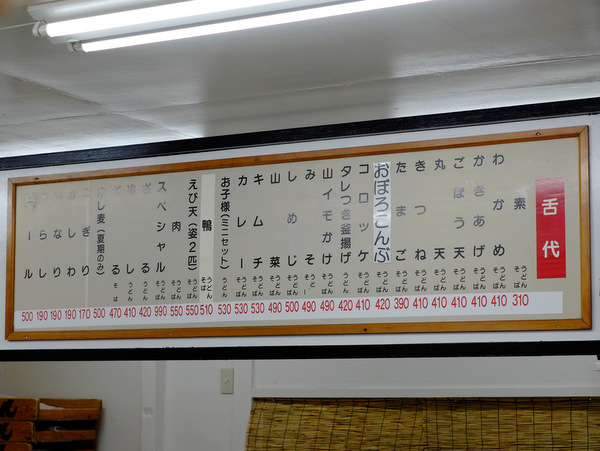 舌代
素 うどん そば 310
わかめ うどん そば 410
かきあげ うどん そば 410
ごぼう天 うどん そば 410
丸天 うどん そば 410
きつね うどん そば 410
たまご うどん そば 390
おぼろこんぶ うどん そば 420
コロッケ うどん そば 410
タレつき釜揚げ うどん 420
山イモかけ うどん そば 490
みそ うどん 490
しめじ うどん そば 500
山菜 うどん そば 490
キムチ うどん そば 530
カレー うどん そば 530
お子様(ミニセット) うどん 530
鴨 うどん そば 510
えび天(姿2匹) うどん そば 550
肉 うどん そば 550
スペシャル うどん そば 990
ざる うどん 420
る うどん 410
ざる そば 470
冷し麦(夏期のみ) 500
にぎり 170
かしわ 190
いなり 190
ちらし 190
ビール 500